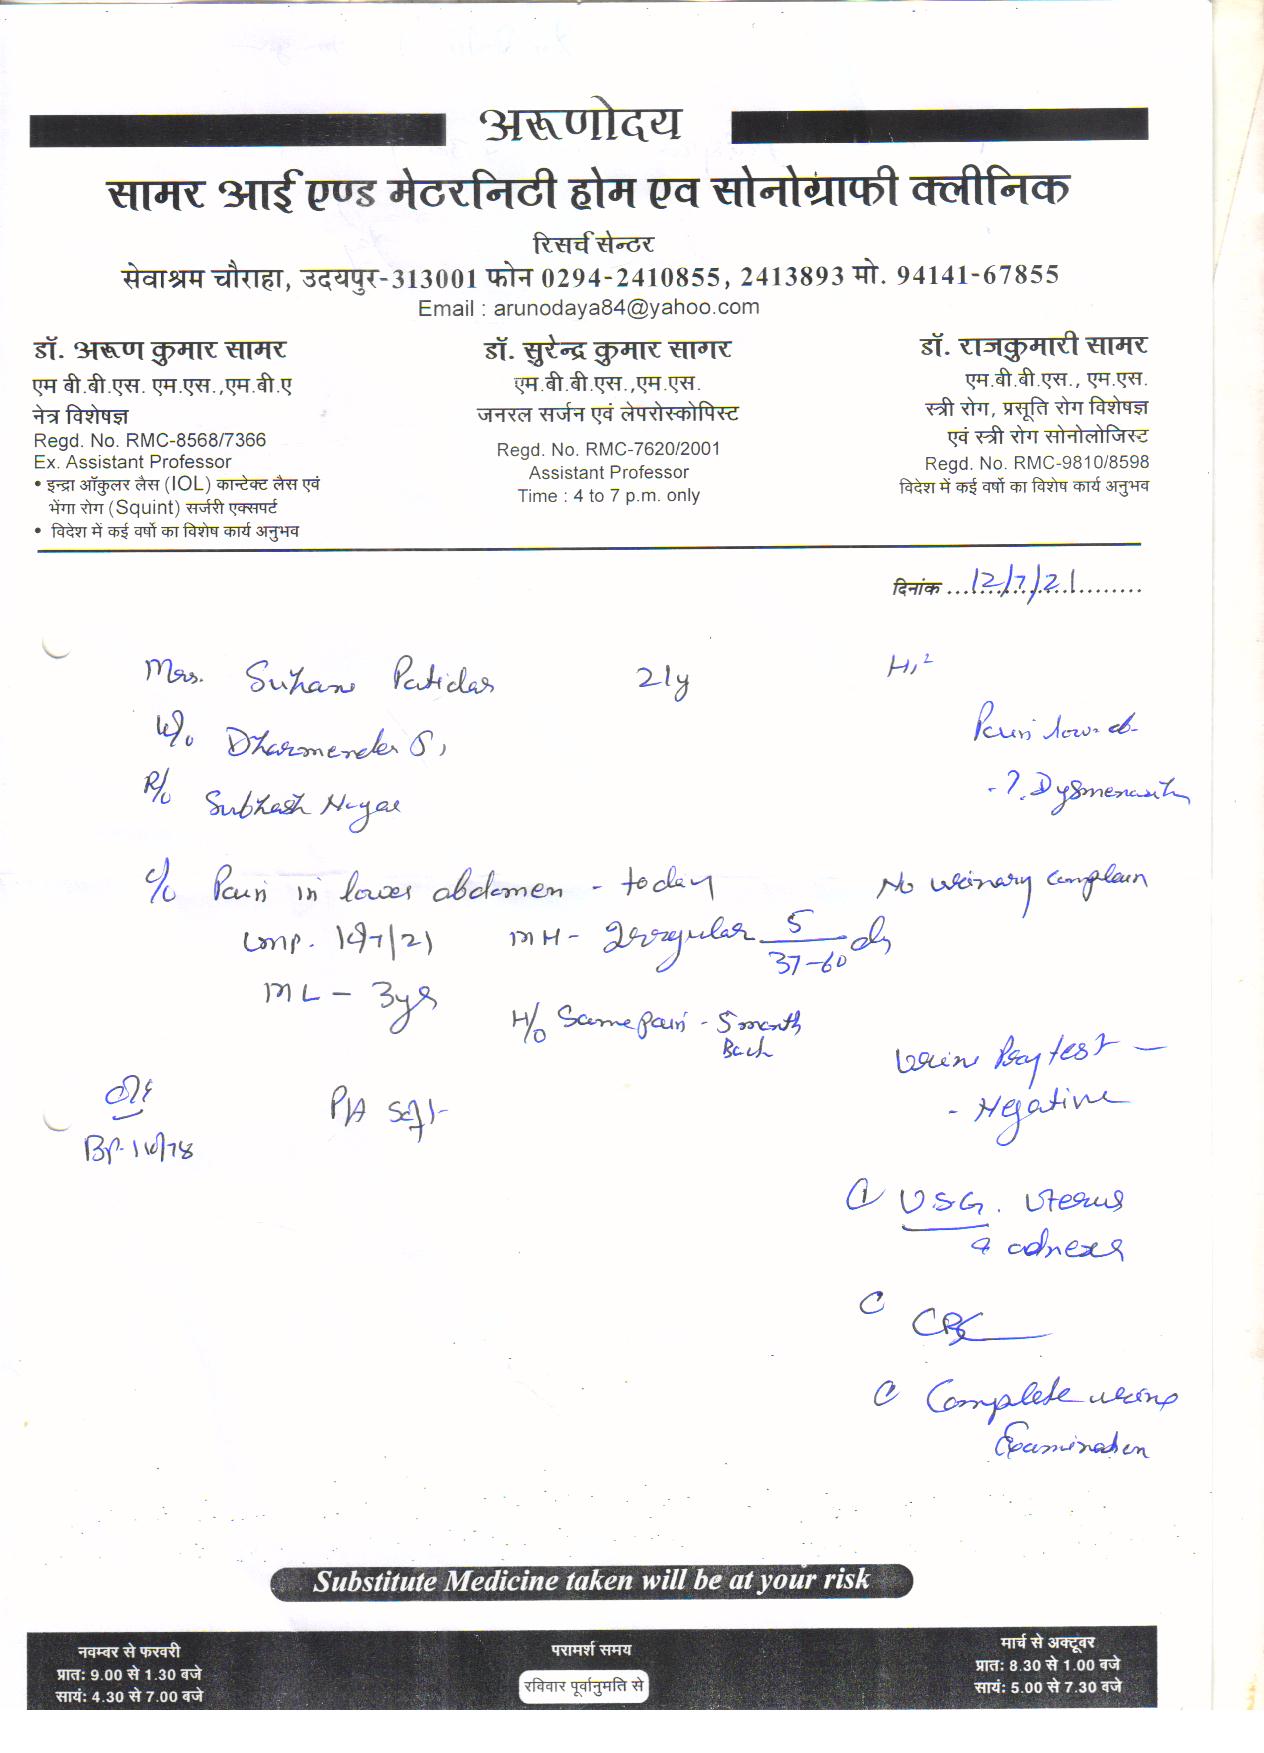 अरूणोदय
सामर आई एण्ड मेटरनिटी होम एव सोनोग्राफी क्लीनिक
रिसर्च सेन्टर
सेवाश्रम चौराहा, उदयपुर-313001 फोन 0294-2410855, 2413893 मो. 94141-67855
Email : arunodaya84@yahoo.com
डॉ. अरूण कुमार सामर
एम बी.बी.एस. एम.एस.,एम.बी.ए
नेत्र विशेषज्ञ
Regd. No. RMC-8568/7366
Ex. Assistant Professor
• इन्द्रा ऑकुलर लैस (IOL) कान्टेक्ट लैस एवं
भेंगा रोग (Squint) सर्जरी एक्सपर्ट
• विदेश में कई वर्षो का विशेष कार्य अनुभव
डॉ. सुरेन्द्र कुमार सागर
एम.बी.बी.एस.,एम.एस.
जनरल सर्जन एवं लेपरोस्कोपिस्ट
Regd. No. RMC-7620/2001
Assistant Professor
Time : 4 to 7 p.m. only
डॉ. राजकुमारी सामर
एम.बी.बी.एस., एम.एस.
स्त्री रोग, प्रसूति रोग विशेषज्ञ
एवं स्त्री रोग सोनोलोजिस्ट
Regd. No. RMC-9810/8598
विदेश में कई वर्षो का विशेष कार्य अनुभव
दिनांक 12/7/21
Mrs. Suhani Patidar 21y
W/o Dharmender S,
R/o Subhash Nagar
Pain low ab-
- ?. Dysmenorrh
C/o Pain in lower abdomen - today
No urinary complain
LMP. 10/7/21 MH - Irregular 5/37-60 ds
ML - 3ys
H/o Same pain - 5 month
Back
Urine Preg test -
- Negative
O/E
P/A Soft
BP-110/78
USG. Uterus
& adnexa
CBC
Complete urine
Examination
Substitute Medicine taken will be at your risk
नवम्वर से फरवरी
प्रातः 9.00 से 1.30 वजे
सायं: 4.30 से 7.00 वजे
परामर्श समय
रविवार पूर्वानुमति से
मार्च से अक्टूवर
प्रातः 8.30 से 1.00 वजे
सायं: 5.00 से 7.30 वजे